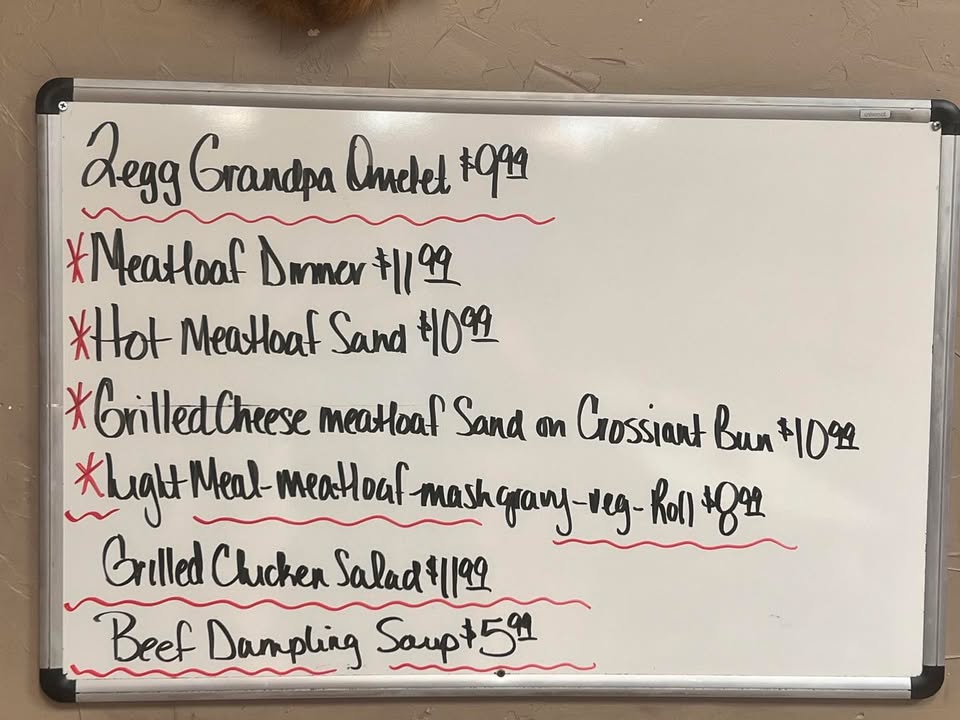 2egg Grandpa Omelet $9.99
*Meatloaf Dinner $11.99
*Hot Meatloaf Sand $10.99
*Grilled Cheese meatloaf Sand on Crossiant Bun $10.99
*Light Meal-meatloaf-mash gravy-veg-Roll $8.99
Grilled Chicken Salad $11.99
Beef Dumpling Soup $5.99